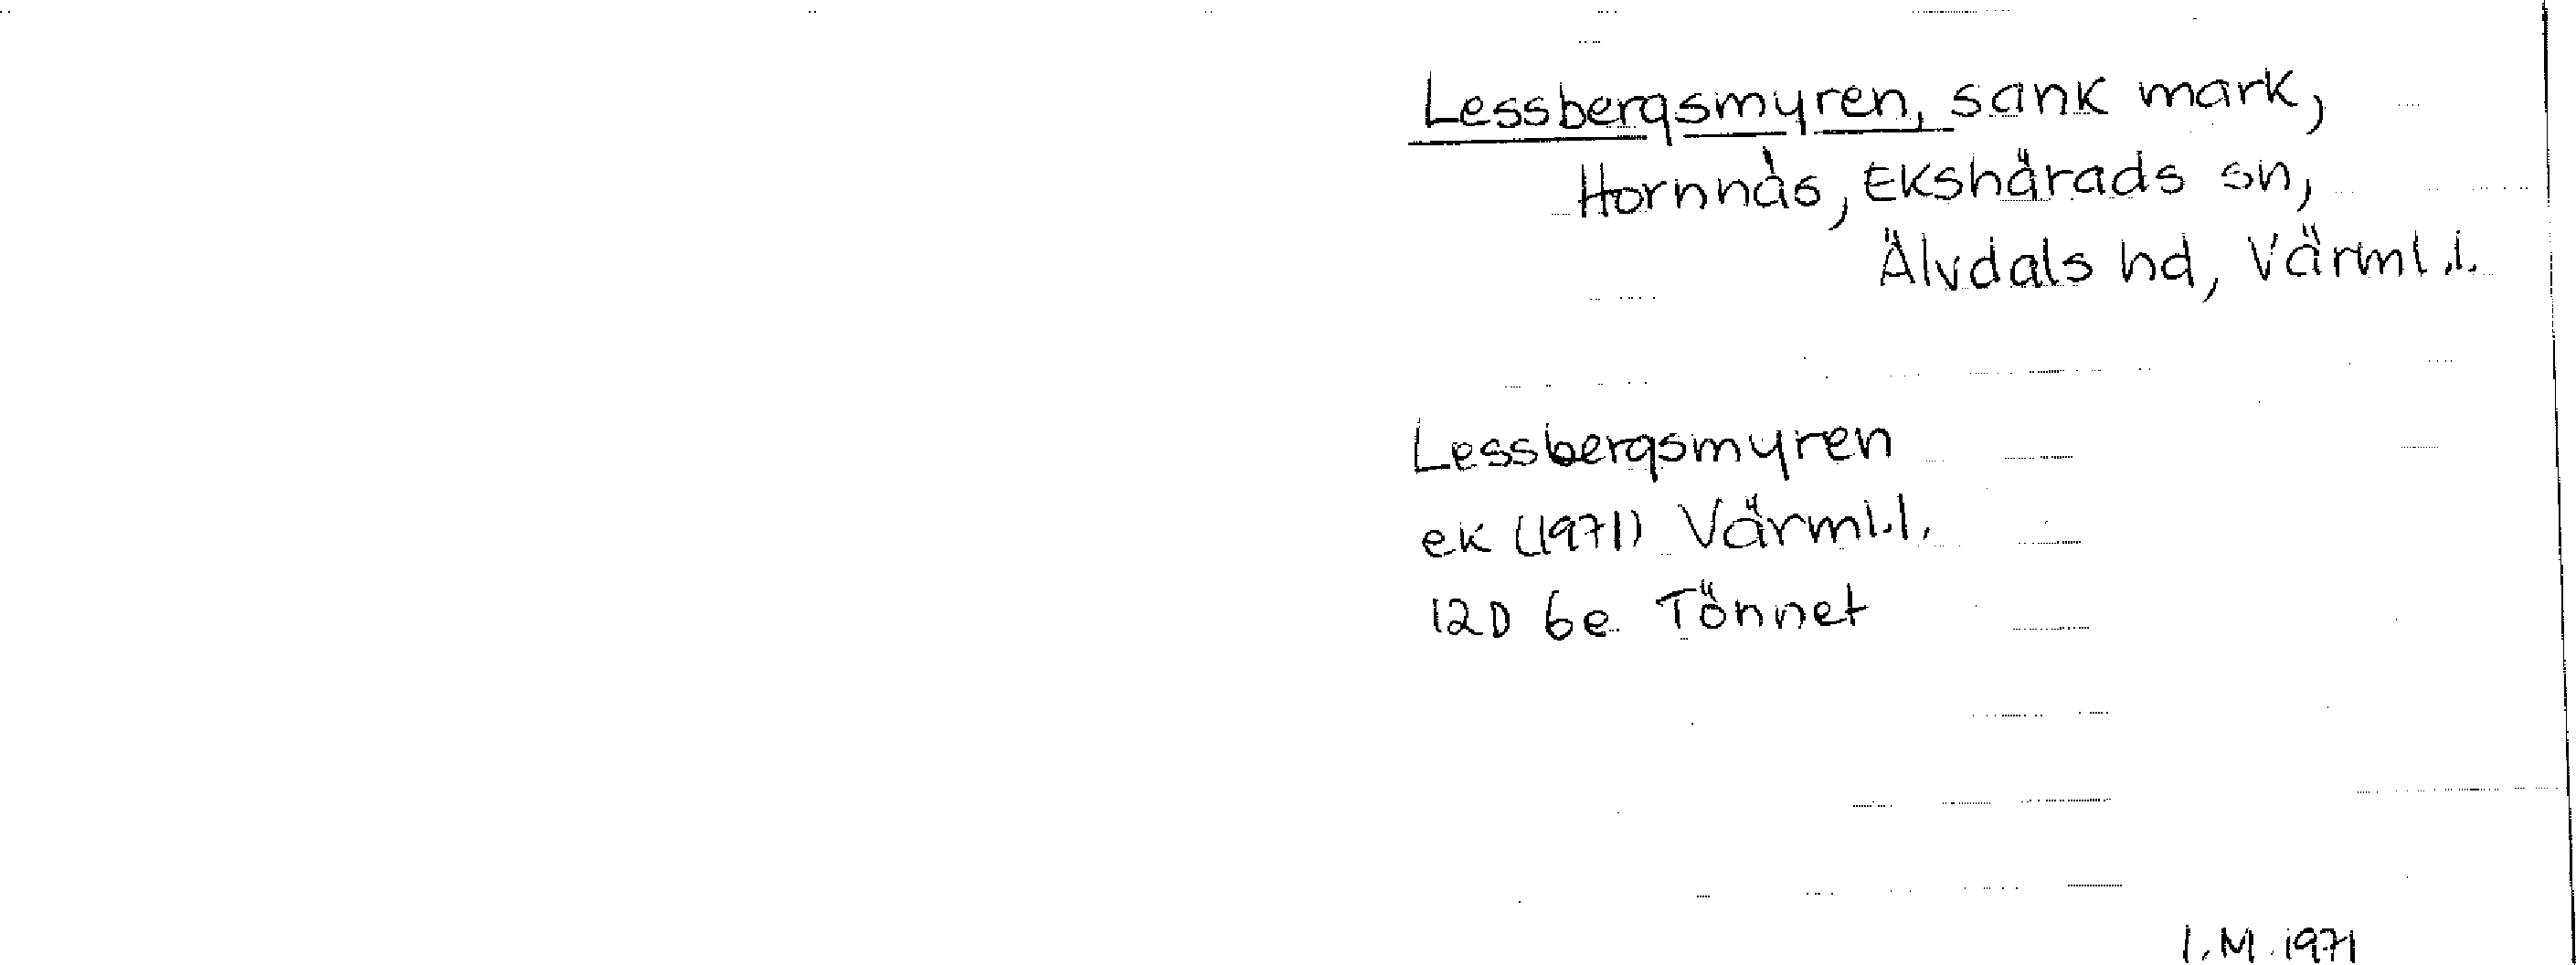 Lessbergsmyren, sank mark,
Hornnäs, Ekshärads sn,
Älvdals hd, Värml.l.
Lessbergsmyren
ek (1971) Värml.l.
12D 6e Tönnet
I.M. 1971